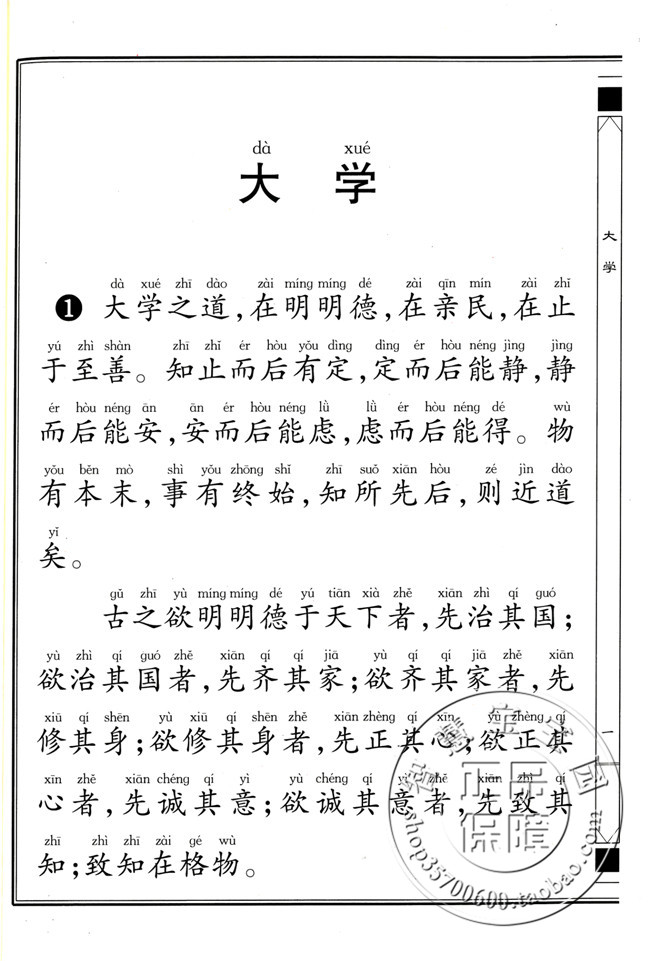 dà xué
大 学
dà xué zhī dào zài míng míng dé zài qīn mín zài zhǐ
❶ 大学之道,在明明德,在亲民,在止
yú zhì shàn zhī zhǐ ér hòu yǒu dìng dìng ér hòu néng jìng jìng
于至善。知止而后有定,定而后能静,静
ér hòu néng ān ān ér hòu néng lǜ lǜ ér hòu néng dé wù
而后能安,安而后能虑,虑而后能得。物
yǒu běn mò shì yǒu zhōng shǐ zhī suǒ xiān hòu zé jìn dào
有本末,事有终始,知所先后,则近道
yǐ
矣。
gǔ zhī yù míng míng dé yú tiān xià zhě xiān zhì qí guó
古之欲明明德于天下者,先治其国;
yù zhì qí guó zhě xiān qí qí jiā yù qí qí jiā zhě xiān
欲治其国者,先齐其家;欲齐其家者,先
xiū qí shēn yù xiū qí shēn zhě xiān zhèng qí xīn yù zhèng qí
修其身;欲修其身者,先正其心;欲正其
xīn zhě xiān chéng qí yì yù chéng qí yì zhě xiān zhì qí
心者,先诚其意;欲诚其意者,先致其
zhī zhì zhī zài gé wù
知;致知在格物。
大学
一
正品
保障
shop35700600.taobao.com